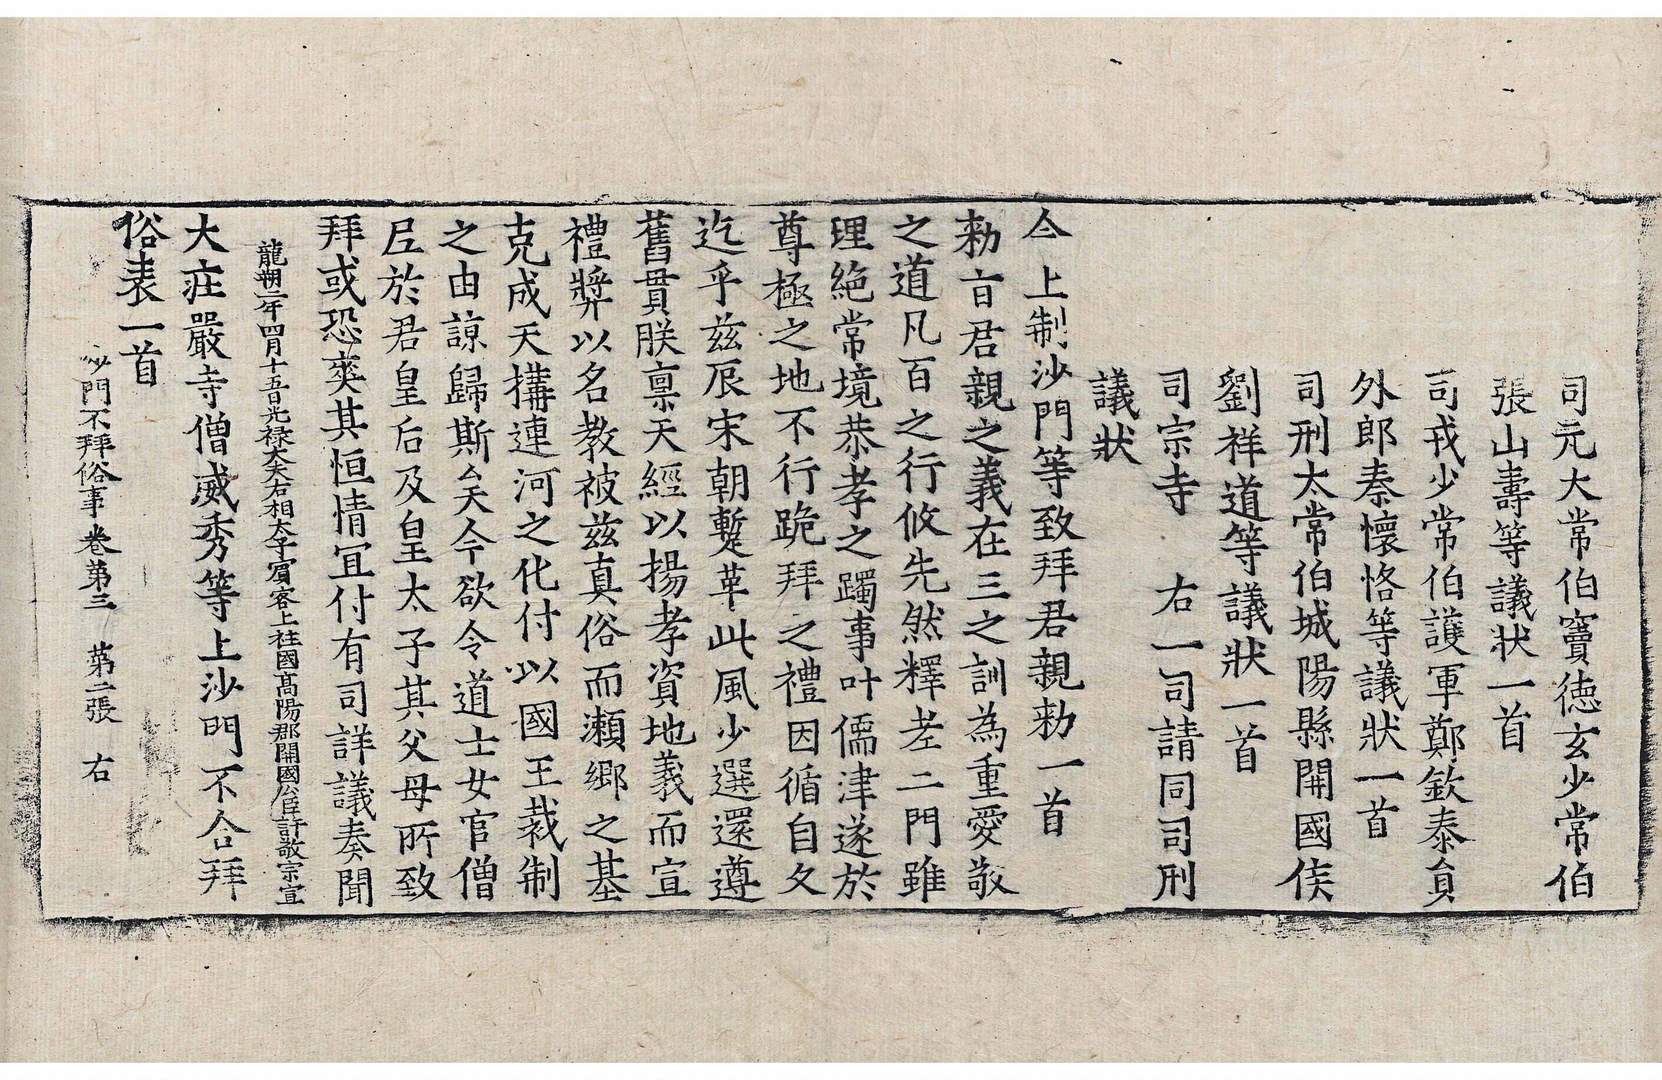 司元大常伯竇德玄少常伯
張山壽等議狀一首
司戎少常伯護軍鄭欽泰貟
外郎秦懷恪等議狀一首
司刑太常伯城陽縣開國侯
劉祥道等議狀一首
司宗寺　右一司請同司刑
議狀
今上制沙門等致拜君親勑一首
勑旨君親之義在三之訓為重愛敬
之道凡百之行攸先然釋老二門雖
理絕常境恭孝之躅事叶儒津遂於
尊極之地不行跪拜之禮因循自久
迄乎兹辰宋朝蹔革此風少選還遵
舊貫朕禀天經以揚孝資地義而宣
禮奬以名教被兹真俗而瀨鄉之基
克成天構連河之化付以國王裁制
之由諒歸斯矣今欲令道士女官僧
尼於君皇后及皇太子其父母所致
拜或恐爽其恒情宜付有司詳議奏聞
龍朔二年四月十五日光禄大夫右相太子賓客上柱國高陽郡開國公臣許敬宗宣
大莊嚴寺僧威秀等上沙門不合拜
俗表一首
沙門不拜俗事卷第三　第二張　右